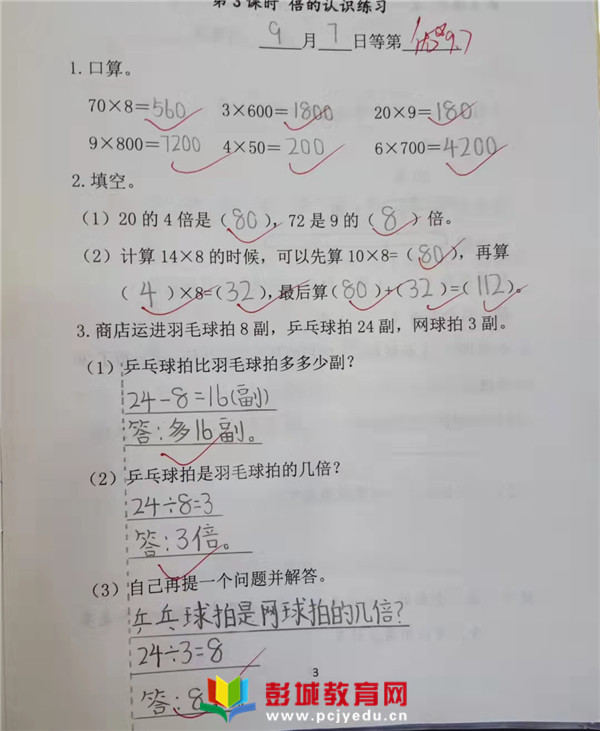 第3课时 倍的认识练习
9月7日等第 9.7
1.口算。
70×8=560 3×600=1800 20×9=180
9×800=7200 4×50=200 6×700=4200
2.填空。
(1)20的4倍是(80),72是9的(8)倍。
(2)计算14×8的时候,可以先算10×8=(80),再算
(4)×8=(32),最后算(80)+(32)=(112)。
3.商店运进羽毛球拍8副,乒乓球拍24副,网球拍3副。
(1)乒乓球拍比羽毛球拍多多少副?
24-8=16(副)
答:多16副。
(2)乒乓球拍是羽毛球拍的几倍?
24÷8=3
答:3倍。
(3)自己再提一个问题并解答。
乒乓球拍是网球拍的几倍?
24÷3=8
答:8
3
彭城教育网
www.pcjyedu.cn